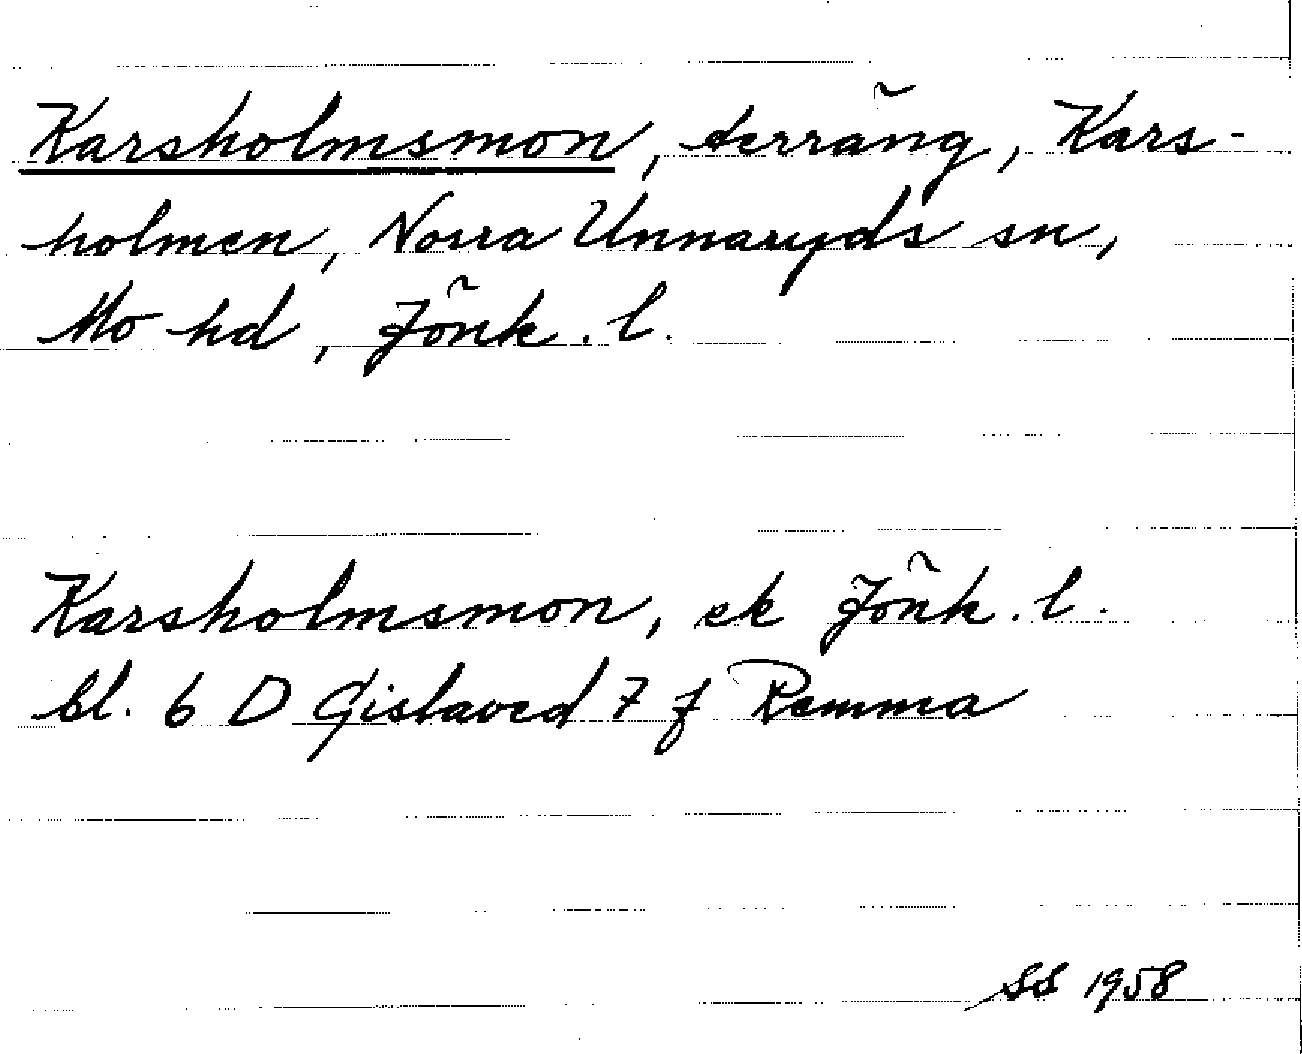 Karsholmsmon, terräng, Kars-
holmen, Norra Unnaryds sn,
Mo hd, Jönk. l.
Karsholmsmon, ek Jönk. l.
bl. 6 D Gislaved 7 f Remma
SS 1958